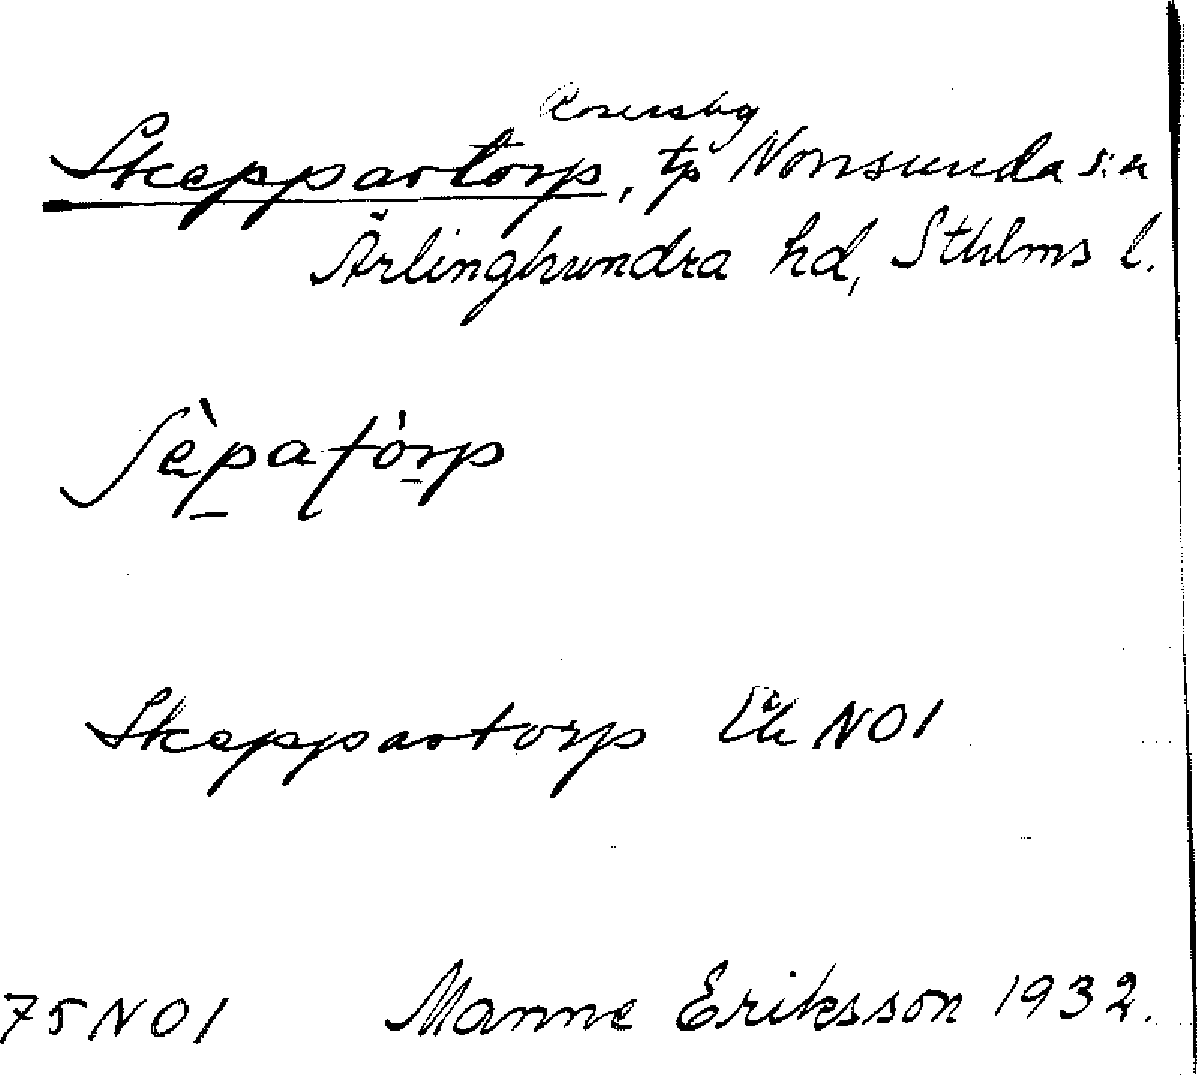 Rosersbg
Skeppartorp, tp Norrsunda sn
Ärlinghundra hd, Sthlms l.
Sèpatórp
Skeppartorp Ek NO1
75 NO1 Manne Eriksson 1932.